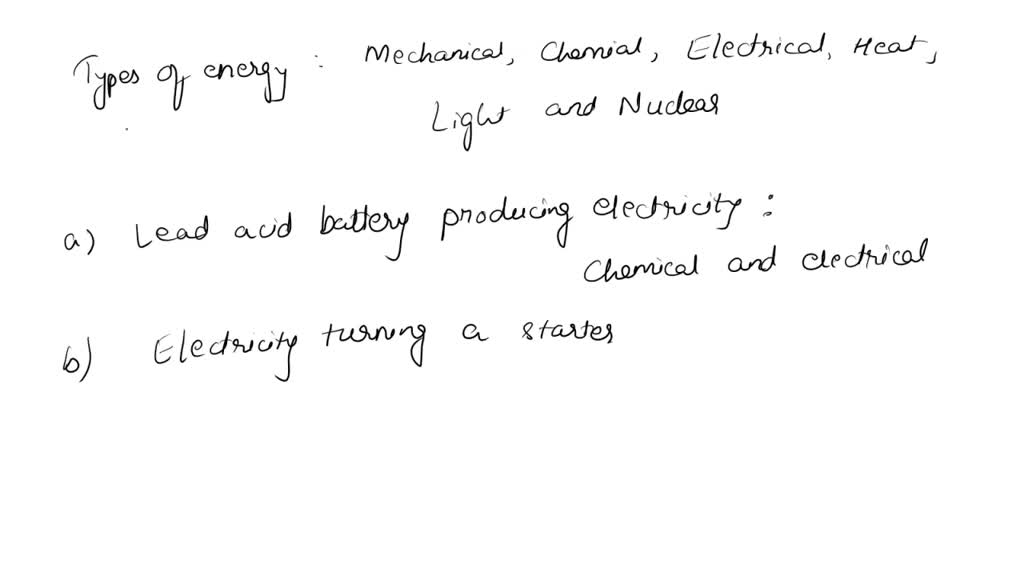 Types of energy : Mechanical, Chemial, Electrical, Heat,
Light and Nuclear
a) Lead acid battery producing electricity :
Chemical and electrical
b) Electricity turning a starter